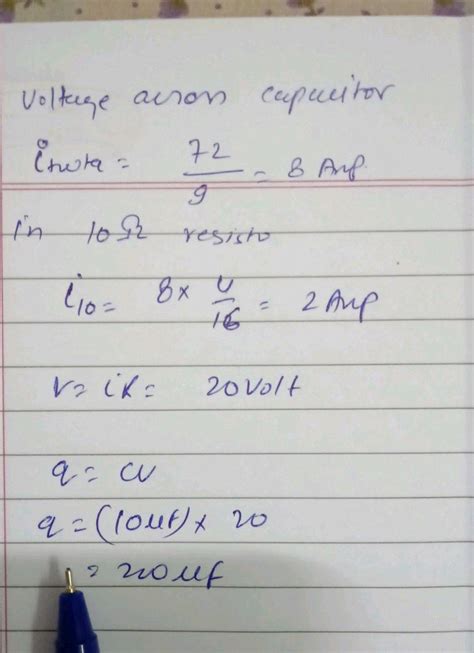 Voltage across capacitor
i = 72/9 = 8 Amp
in 10Ω resisto
i10 = 8 × 4/16 = 2 Amp
V = iR = 20 Volt
q = CV
q = (10μf) × 20
= 200μf